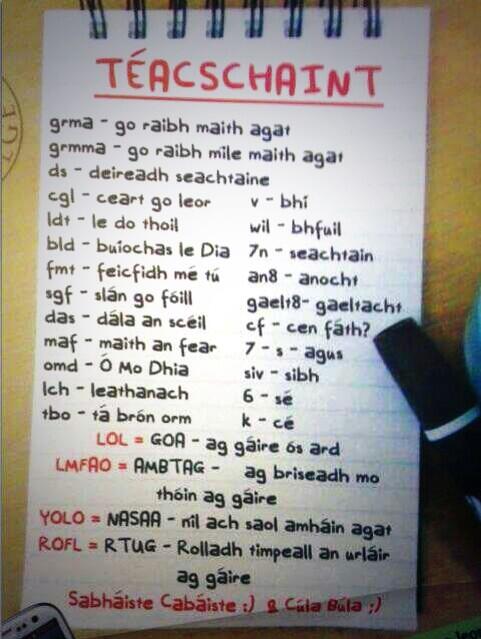 TÉACSCHAINT
grma - go raibh maith agat
grmma - go raibh míle maith agat
ds - deireadh seachtaine
cgl - ceart go leor
ldt - le do thoil
bld - buíochas le Dia
fmt - feicfidh mé tú
sgf - slán go fóill
das - dála an scéil
maf - maith an fear
omd - Ó Mo Dhia
lch - leathanach
tbo - tá brón orm
v - bhí
wil - bhfuil
7n - seachtain
an8 - anocht
gaelt8- gaeltacht
cf - cen fáth?
7 - s - agus
siv - sibh
6 - sé
k - cé
LOL = GOA - ag gáire ós ard
LMFAO = AMBTAG - ag briseadh mo
thóin ag gáire
YOLO = NASAA - níl ach saol amháin agat
ROFL = RTUG - Rolladh timpeall an urláir
ag gáire
Sabháiste Cabáiste :) & Cúla Búla ;)